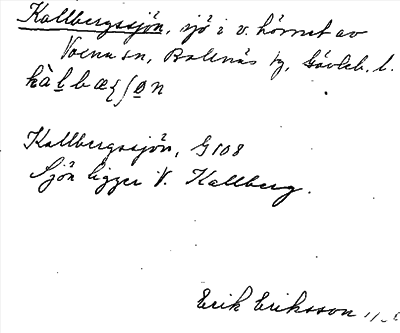 Kallbergssjön, sjö i v. hörnet av
sn, Bollnäs tg, Gävleb. l.
Kallbergssjön, G 108
Sjön ligger V. Kallberg.
Erik Eriksson